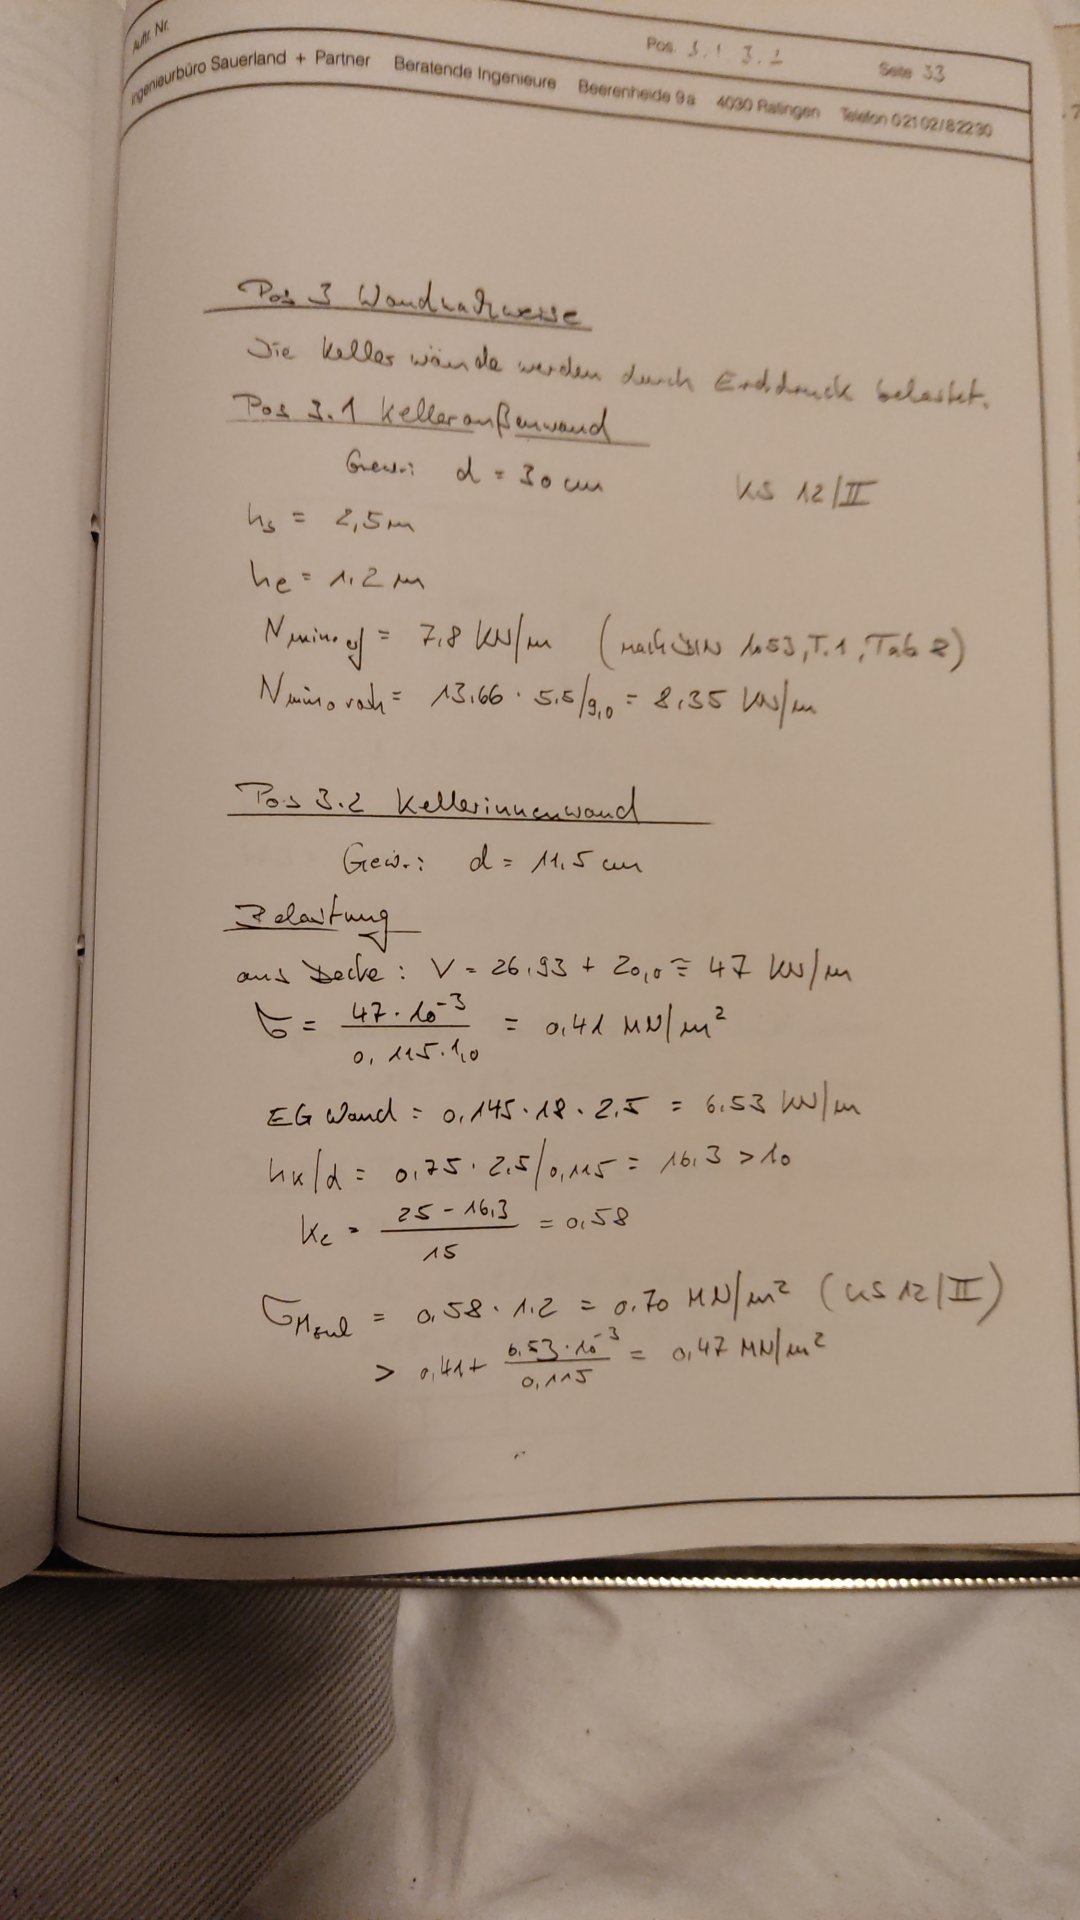 Auftr. Nr.
Pos. 3.1, 3.2
Seite 33
Ingenieurbüro Sauerland + Partner Beratende Ingenieure Beerenheide 9a 4030 Ratingen Telefon 02102/82230
Pos 3 Wandnachweise
Die Kellerwände werden durch Erddruck belastet.
Pos 3.1 Kelleraußenwand
Gew.: d = 30 cm KS 12/II
hs = 2,5 m
he = 1.2 m
N min,erf = 7.8 KN/m (nach DIN 1053, T.1, Tab 8)
N min,vorh = 13.66 · 5.5/9,0 = 8,35 KN/m
Pos 3.2 Kellerinnenwand
Gew.: d = 11,5 cm
Belastung
aus Decke: V = 26,93 + 20,0 ≅ 47 KN/m
σ = 47 · 10⁻³ / 0,115 · 1,0 = 0,41 MN/m²
EG Wand = 0,145 · 18 · 2,5 = 6.53 KN/m
hK/d = 0,75 · 2,5/0,115 = 16,3 > 10
Kc = 25 - 16,3 / 15 = 0,58
σM zul = 0,58 · 1.2 = 0.70 MN/m² (KS 12/II)
> 0,41 + 6,53 · 10⁻³ / 0,115 = 0,47 MN/m²